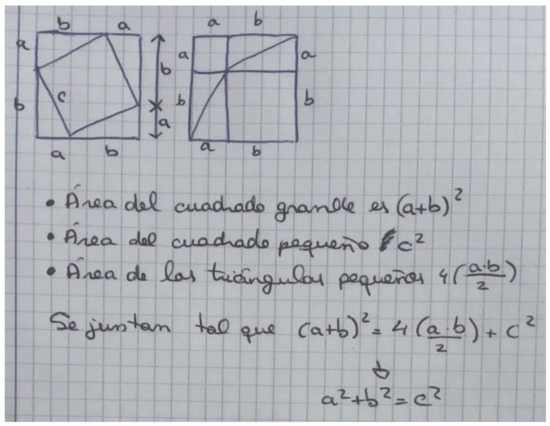 b a
a
b
c
b
a
a b
a b
a a
b b
a b
• Área del cuadrado grande es (a+b)²
• Área del cuadrado pequeño c²
• Área de los triángulos pequeños 4(a·b/2)
Se juntan tal que (a+b)² = 4(a·b/2) + c²
a²+b²=c²